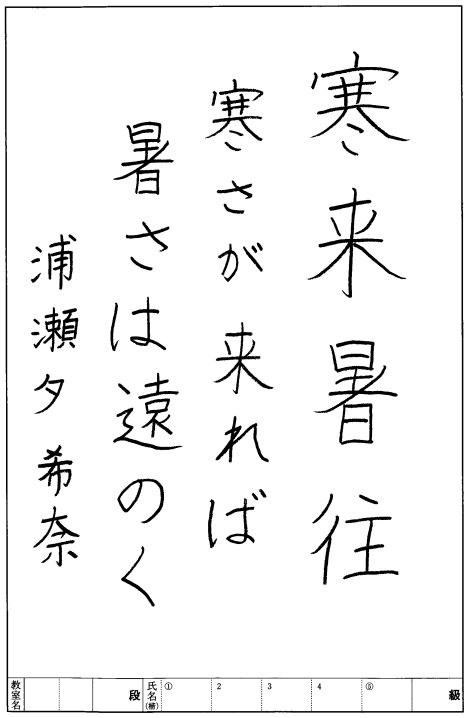 寒来暑往
寒さが来れば
暑さは遠のく
浦瀬夕希奈
級
⑤
4
3
2
①
氏名(楷)
段
教室名